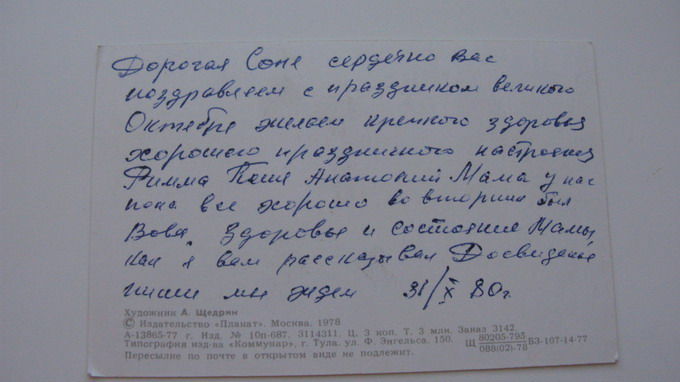 Дорогая Соне сердечно Вас
поздравляем с праздником великого
Октября желаем крепкого здоровья
хорошего праздничного настроения
Римма Коля Анатолий Мама у нас
пока все хорошо во вторник был
Вова. Здоровье и состояние Мамы,
как я вам рассказывал Досвидание
пиши мы ждем 31/X 80г.
Художник А. Щедрин
© Издательство «Планат». Москва. 1978
А-13865-77 г. Изд. № 10п-687. 3114311. Ц. 3 коп. Т. 3 млн. Заказ 3142.
Типография изд-ва «Коммунар», г. Тула. ул. Ф. Энгельса. 150. Щ 80205-795/088(02)-78 БЗ-107-14-77
Пересылке по почте в открытом виде не подлежит.